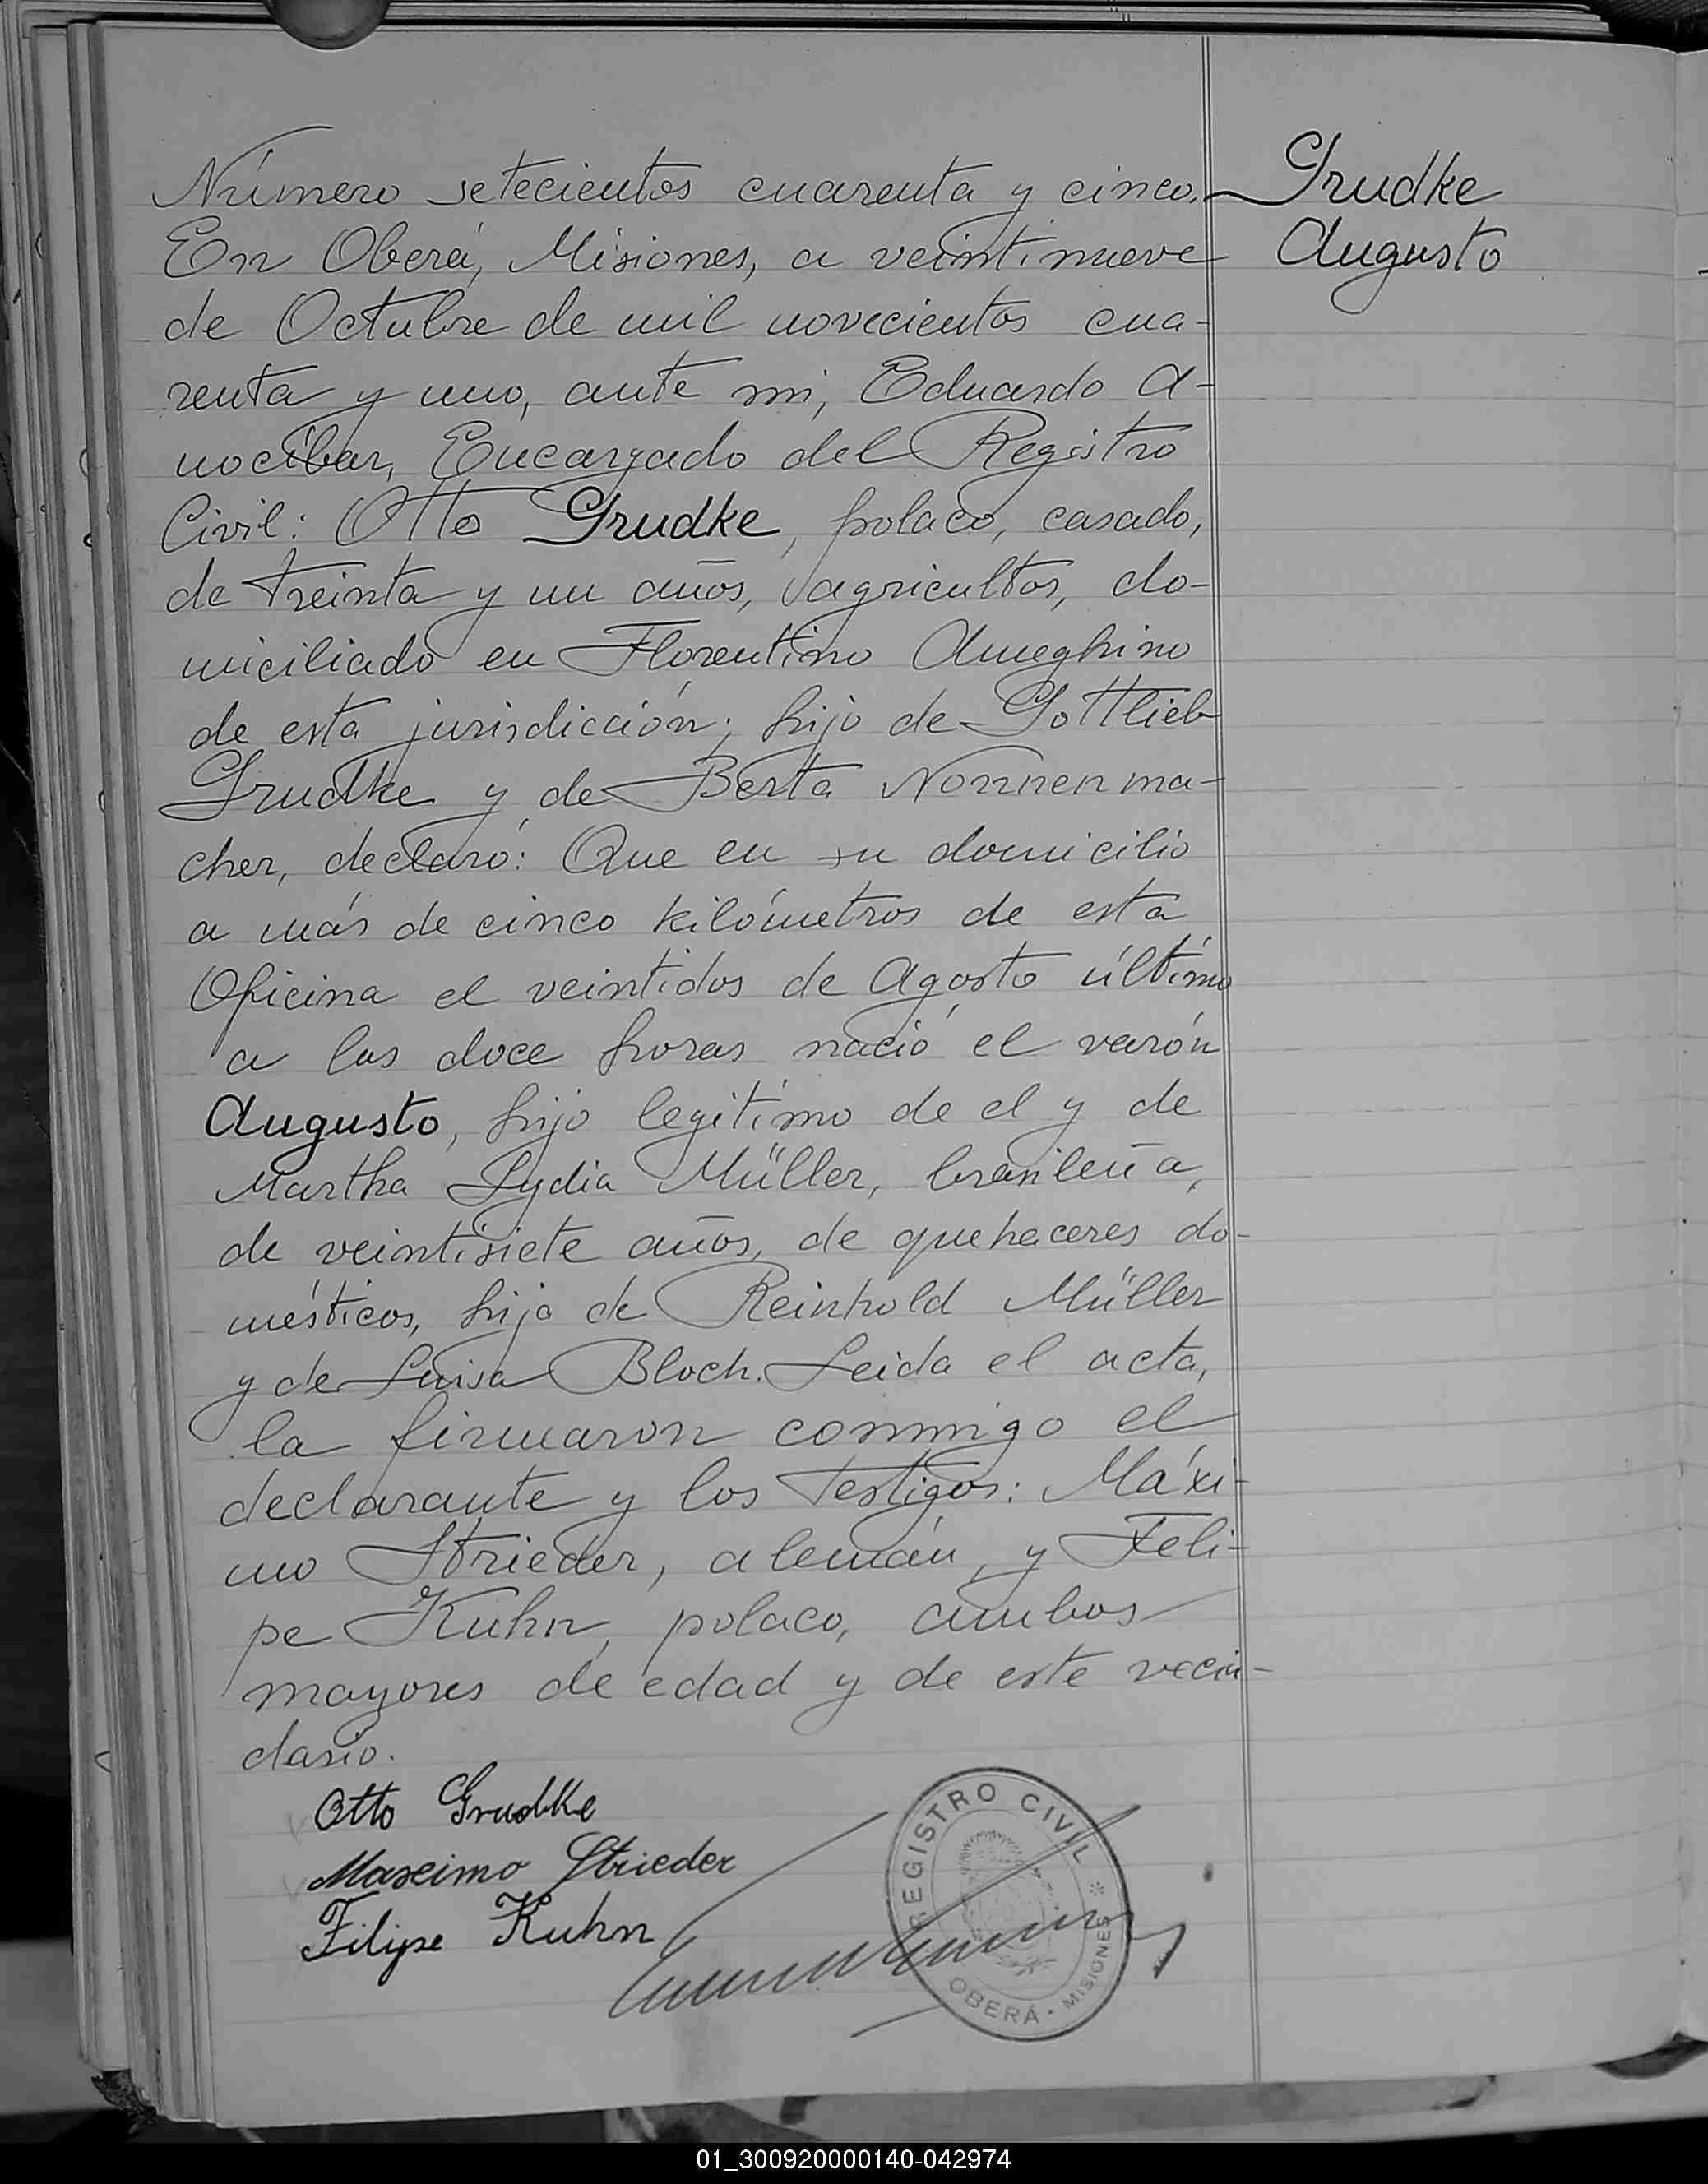 Número setecientos cuarenta y cinco.
Grudke
Augusto
En Oberá, Misiones, a veintinueve
de Octubre de mil novecientos cua-
renta y uno, ante mi, Eduardo A-
nocíbar, Encargado del Registro
Civil: Otto Grudke, polaco, casado,
de treinta y un años, agricultor, do-
miciliado en Florentino Ameghino
de esta jurisdicción; hijo de Gottlieb
Grudke y de Berta Nonnenma-
cher, declaró: Que en su domicilio
a más de cinco kilómetros de esta
Oficina el veintidos de Agosto último
a las doce horas nació el varón
Augusto, hijo legítimo de el y de
Martha Lydia Müller, brasileña,
de veintisiete años, de quehaceres do-
mésticos, hija de Reinhold Müller
y de Luisa Bloch. Leida el acta,
la firmaron conmigo el
declarante y los testigos: Máxi-
mo Strieder, alemán, y Feli-
pe Kuhn, polaco, ambos
mayores de edad y de este vecin-
dario.
Otto Grudke
Maximo Strieder
Filipe Kuhn
REGISTRO CIVIL
OBERÁ - MISIONES
01_300920000140-042974